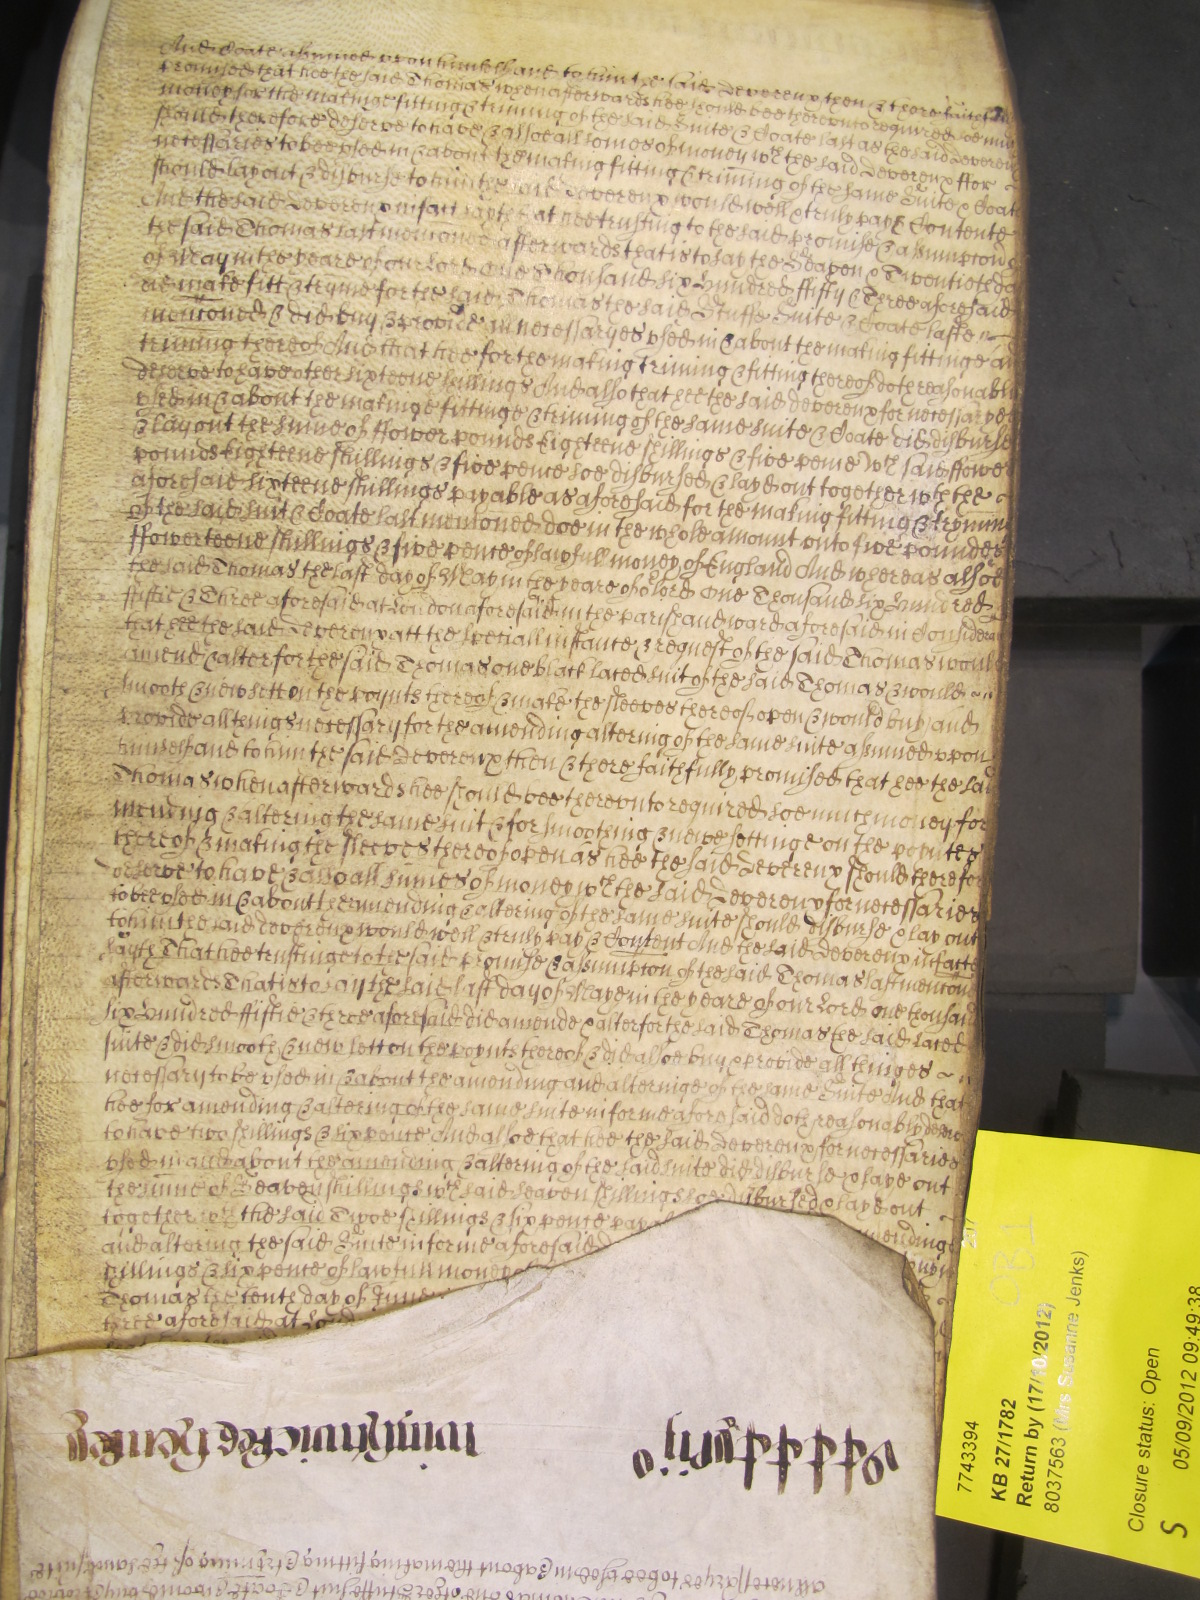 And Coate assumed upon himselfe and to him the said Devereux then & there faithf
promised that hee the said Thomas when afterwards hee should bee thereunto required soe much
money for the makinge fitting & triming of the said Suite & Coate last as the said Devereux
should therefore deserve to have & alsoe all somes of money wch the said Devereux ffor
necessaries to bee used in & about the making fitting & triming of the same Suite & Coate
should lay out & disburse to him the said Devereux would well & truly paye & Contente
And the said Devereux in fact sayth that hee trusting to the said promise & assumpcon
the said Thomas last menconed afterwards that is to say the Seaven & Twentieth da
of May in the yeare of our Lord One Thousand six Hundred ffifty & Three aforesaid
did make fitt & tryme for the said Thomas the said Stuffe Suite & Coate laste
menconed & did buy & provide all necessaryes used in & about the making fittinge an
triming thereof And that hee for the making triming & fitting thereof doth reasonably
deserve to have other sixteene shillings And also that hee the said devereux for necessaryes
used in & about the makinge fittinge & triming of the same suite & Coate did disburse
& lay out the sume of ffower pounds Eighteene shillings & five pence wch said ffower
pounds Eighteene shillings & five pence soe disbursed & layd out together wth the
aforesaid sixteene shillings payable as aforesaid for the making fitting & tryming
of the said suit & Coate last menconed doe in the whole amount unto five pounds
ffowerteene shillings & five pence of lawfull money of England And whereas alsoe
the said Thomas the last day of May in the yeare of or Lord One Thousand six Hundred
ffiftie & Three aforesaid at London aforesaid in the parish and ward aforesaid in Considera
that hee the said Devereux att the speciall instance & request of the said Thomas would
amend & alter for the said Thomas one black laced suit of the said Thomas & would
smooth & new sett on the poynts thereof & make the sleeves thereof open & would buy and
provide all things necessary for the amending altering of the same suite assumed upon
himself and to him the said Devereux then & there faithfully promised that hee the said
Thomas when afterwards hee should bee thereunto required soe much money for
mending & altering the same suit & for smoothing & newe settinge on the poyntes
thereof & making the sleeves thereof open as hee the said Devereux should therefor
deserve to have & also all sumes of money wch the said Devereux for necessaries
to be used in & about the amending & altering of the same suite should disburse & lay out
to him the said devereux would well & truly pay & Content And the said Devereux in facte
sayth That hee trustinge to the said promise & assumpcon of the said Thomas last mencond
afterwards That is to say the said last day of Maye in the yeare of our Lord one thousand
six Hundred ffiftie & three aforesaid did amende & alter for the said Thomas the said laced
suite & did smooth & new sett on the poynts thereof & did alsoe buy & provide all thinges
necessary to be used in & about the amending and alteringe of the same Suite And that
hee for amending & altering of the same suite in forme aforesaid doth reasonably deserve
to have two shillings & six pence And alsoe that hee the said Devereux for necessaries
used in and about the amending & altering of the said suite did disburse & laye out
the sume of Seaven shillings wch said seaven shillings soe disbursed & laye out
together wth the said Twoe shillings & six pence paya mending
and altering the said Suite in forme aforesaid
shillings & six pence of lawfull money
Thomas the tenth day of June
three aforesaid at Lo
7743394
KB 27/1782
Return by (17/10/2012)
8037563 (Mrs Susanne Jenks)
Closure status: Open
05/09/2012 09:49:38
S